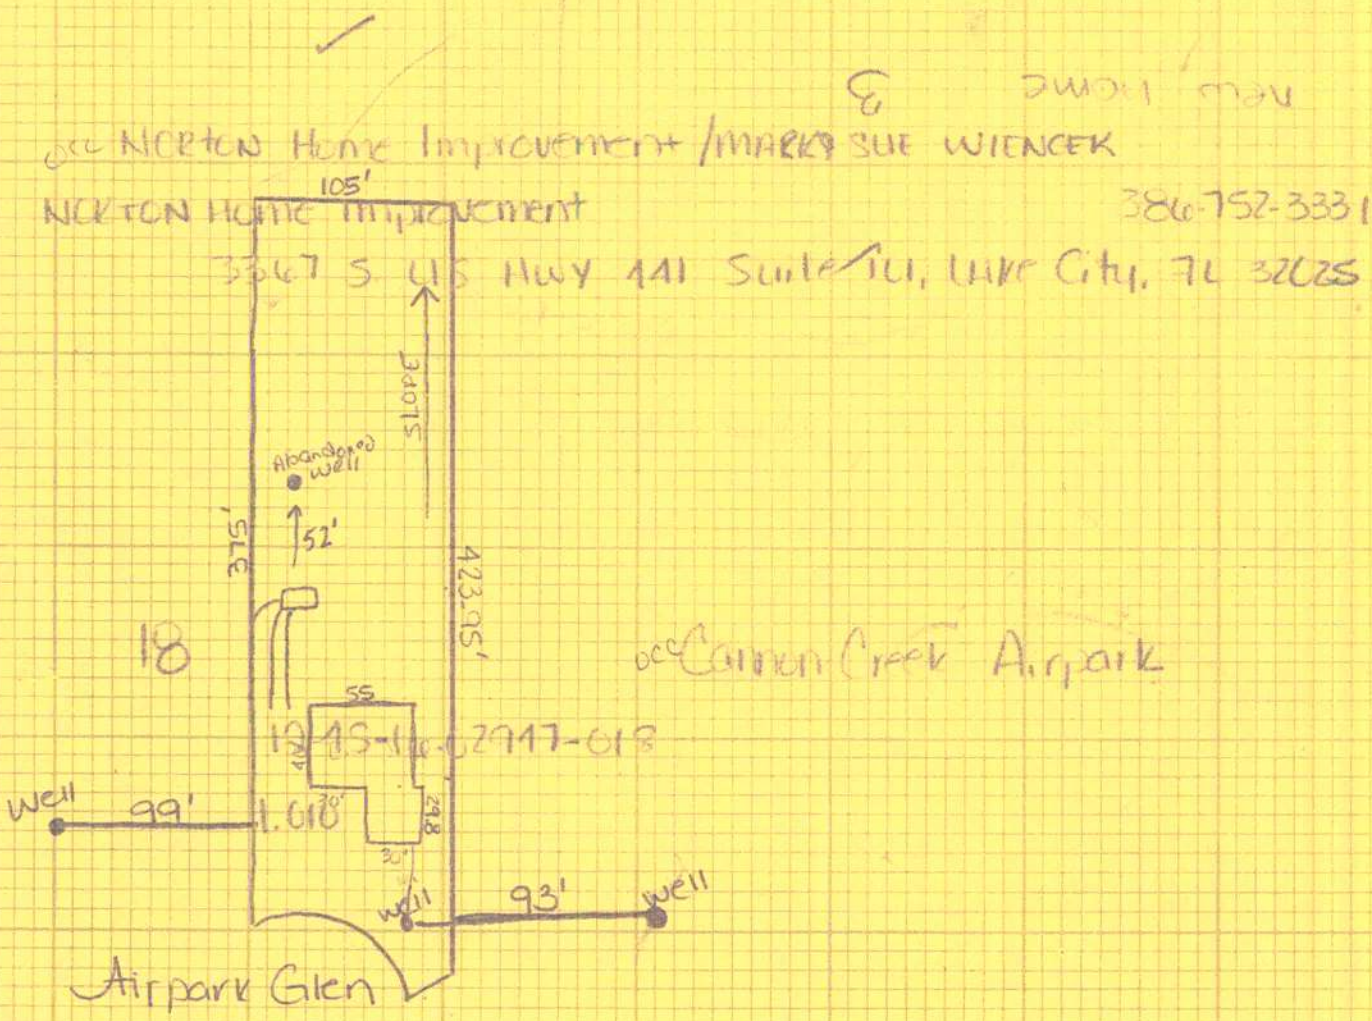 new home 3
occ NORTON Home Improvement / MARK & SUE WIENCEK
105'
NORTON Home Improvement 386-752-3331
3367 S US HWY 441 Suite 101, Lake City, FL 32025
SLOPE
Abandoned
well
375'
52'
423.95'
18
occ Cannon Creek Airpark
55
02947-018
well 99' 1.010 30' 29.8
30'
well 93' well
Airpark Glen